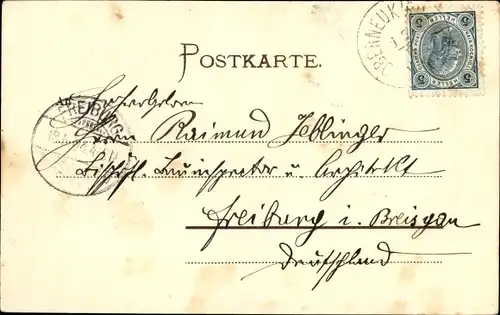 POSTKARTE.
OBERNEUK
5 HELLER 5
FREIBURG
Hochwohlgeboren
Herrn Raimund Jeblinger
Bischöfl. Bauinspector u. Architekt
Freiburg i. Breisgau
Deutschland